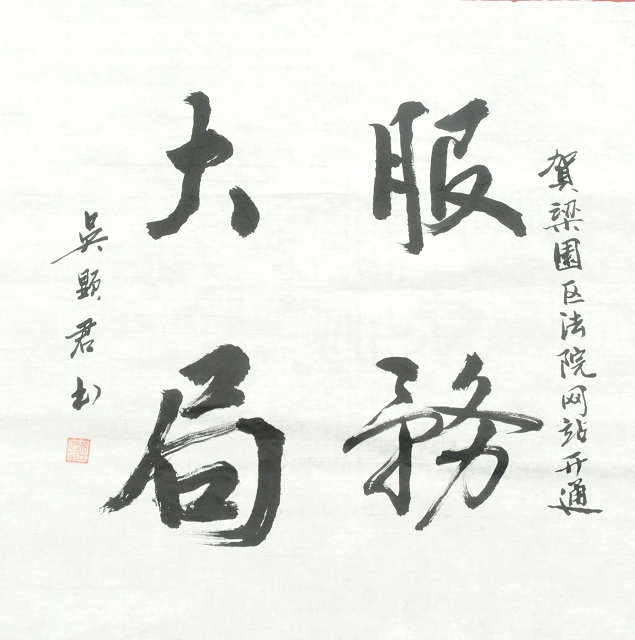 賀梁園区法院网站开通
服務
大局
吳顯君书